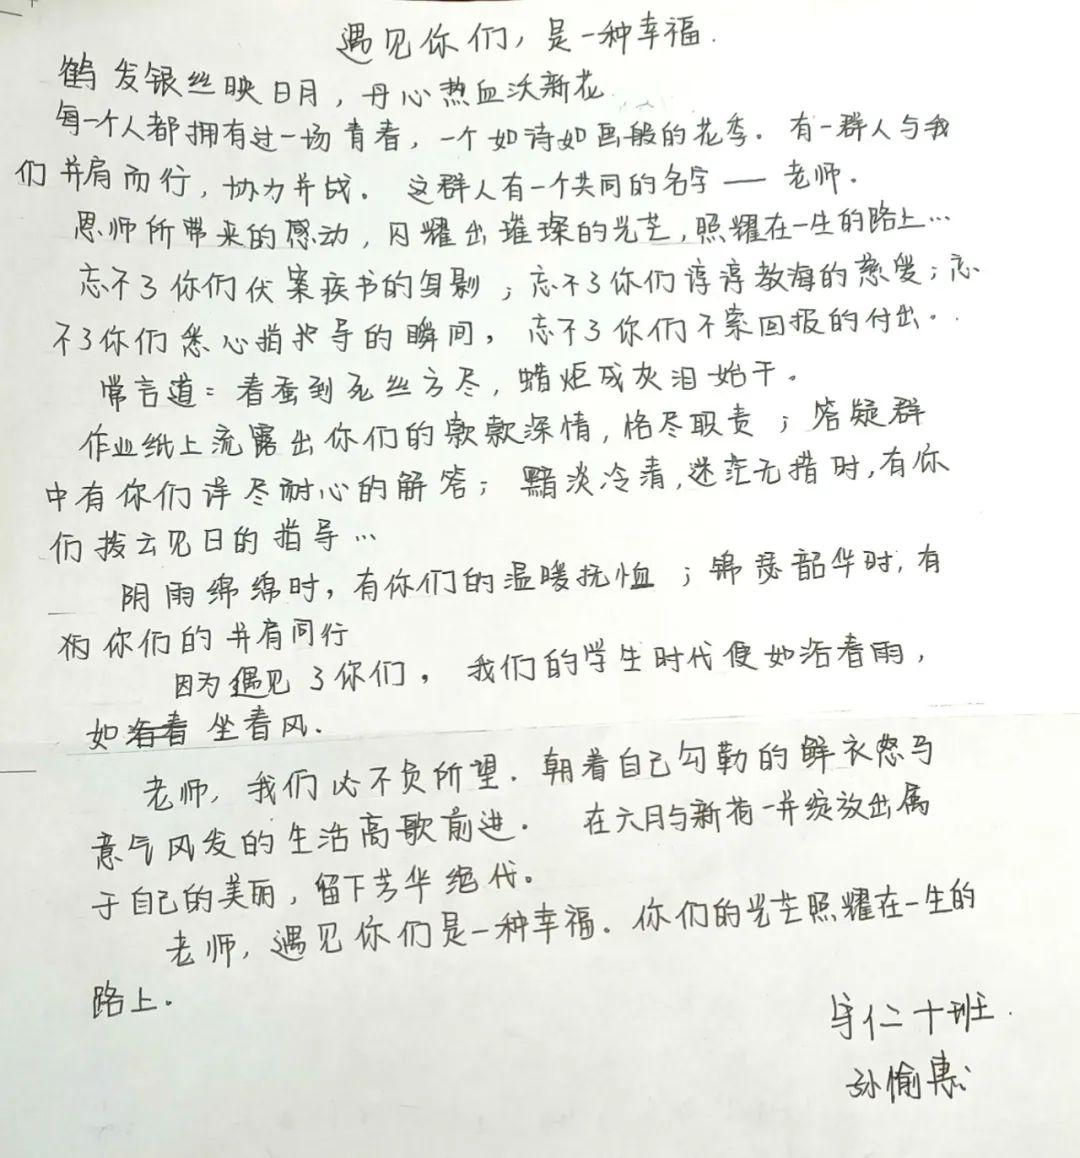 遇见你们，是一种幸福.
鹤发银丝映日月，丹心热血沃新花
每一个人都拥有过一场青春，一个如诗如画般的花季. 有一群人与我
们并肩而行，协力并战. 这群人有一个共同的名字——老师.
恩师所带来的感动，闪耀出璀璨的光芒，照耀在一生的路上…
忘不了你们伏案疾书的身影；忘不了你们谆谆教诲的慈爱；忘
不了你们悉心指导的瞬间，忘不了你们不索回报的付出..
常言道：春蚕到死丝方尽，蜡炬成灰泪始干。
作业纸上流露出你们的款款深情，恪尽职责；答疑群
中有你们详尽耐心的解答；黯淡冷清，迷茫无措时，有你
们拨云见日的指导…
阴雨绵绵时，有你们的温暖抚恤；锦瑟韶华时，有
你们的并肩同行
因为遇见了你们，我们的学生时代便如沐春雨，
如坐春风.
老师，我们必不负所望. 朝着自己勾勒的鲜衣怒马
意气风发的生活高歌前进. 在六月与新荷一并绽放出属
于自己的美丽，留下芳华绝代。
老师，遇见你们是一种幸福. 你们的光芒照耀在一生的
路上。
守仁十班.
孙愉